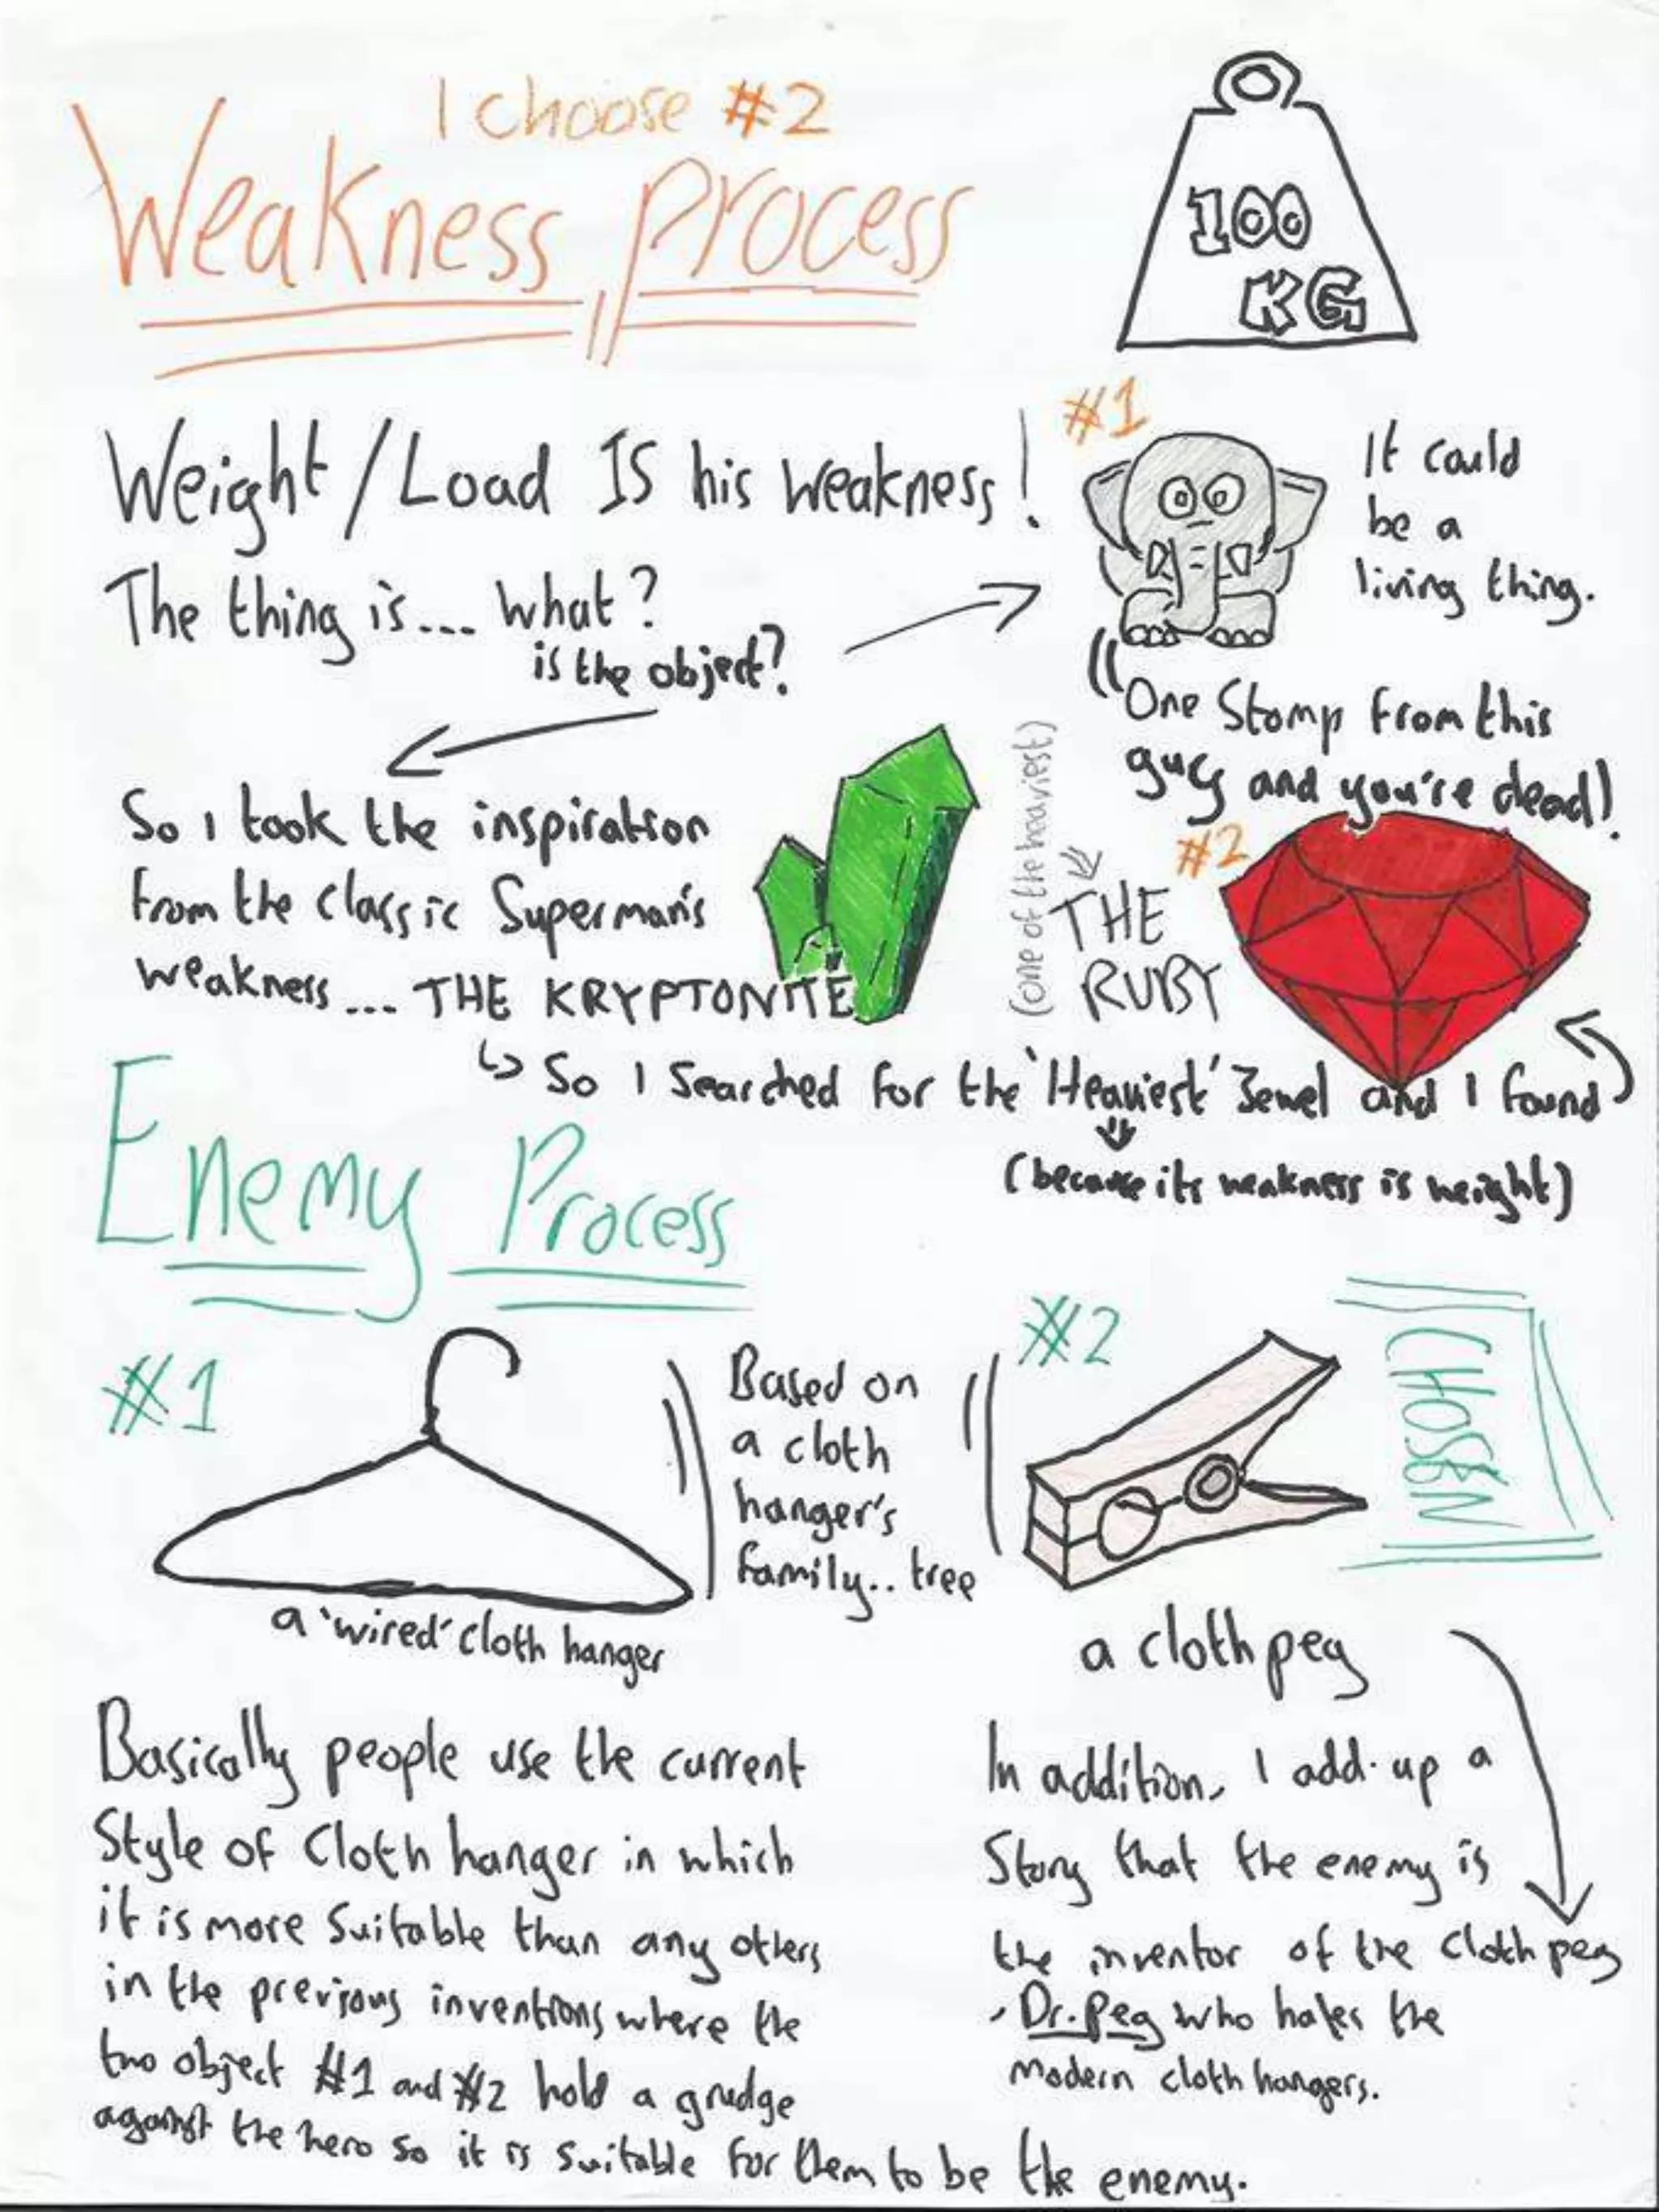 I choose #2
Weakness process
100
KG
Weight/Load IS his weakness!
The thing is... what?
is the object?
#1
It could
be a
living thing.
"One Stomp from this
guy and you're dead!
So I took the inspiration
from the classic Superman's
weakness.... THE KRYPTONITE
(one of the heaviest)
#2
THE
RUBY
So I Searched for the 'Heaviest' Jewel and I found
(because its weakness is weight)
Enemy Process
#1
a 'wired' cloth hanger
Based on
a cloth
hanger's
family.. tree
#2
CHOSEN
a cloth peg
Basically people use the current
Style of Cloth hanger in which
it is more Suitable than any others
in the previous inventions where the
two object #1 and #2 hold a grudge
against the hero so it is suitable for them to be the enemy.
In addition, I add-up a
Story that the enemy is
the inventor of the Cloth peg
, Dr. Peg who hates the
modern cloth hangers.